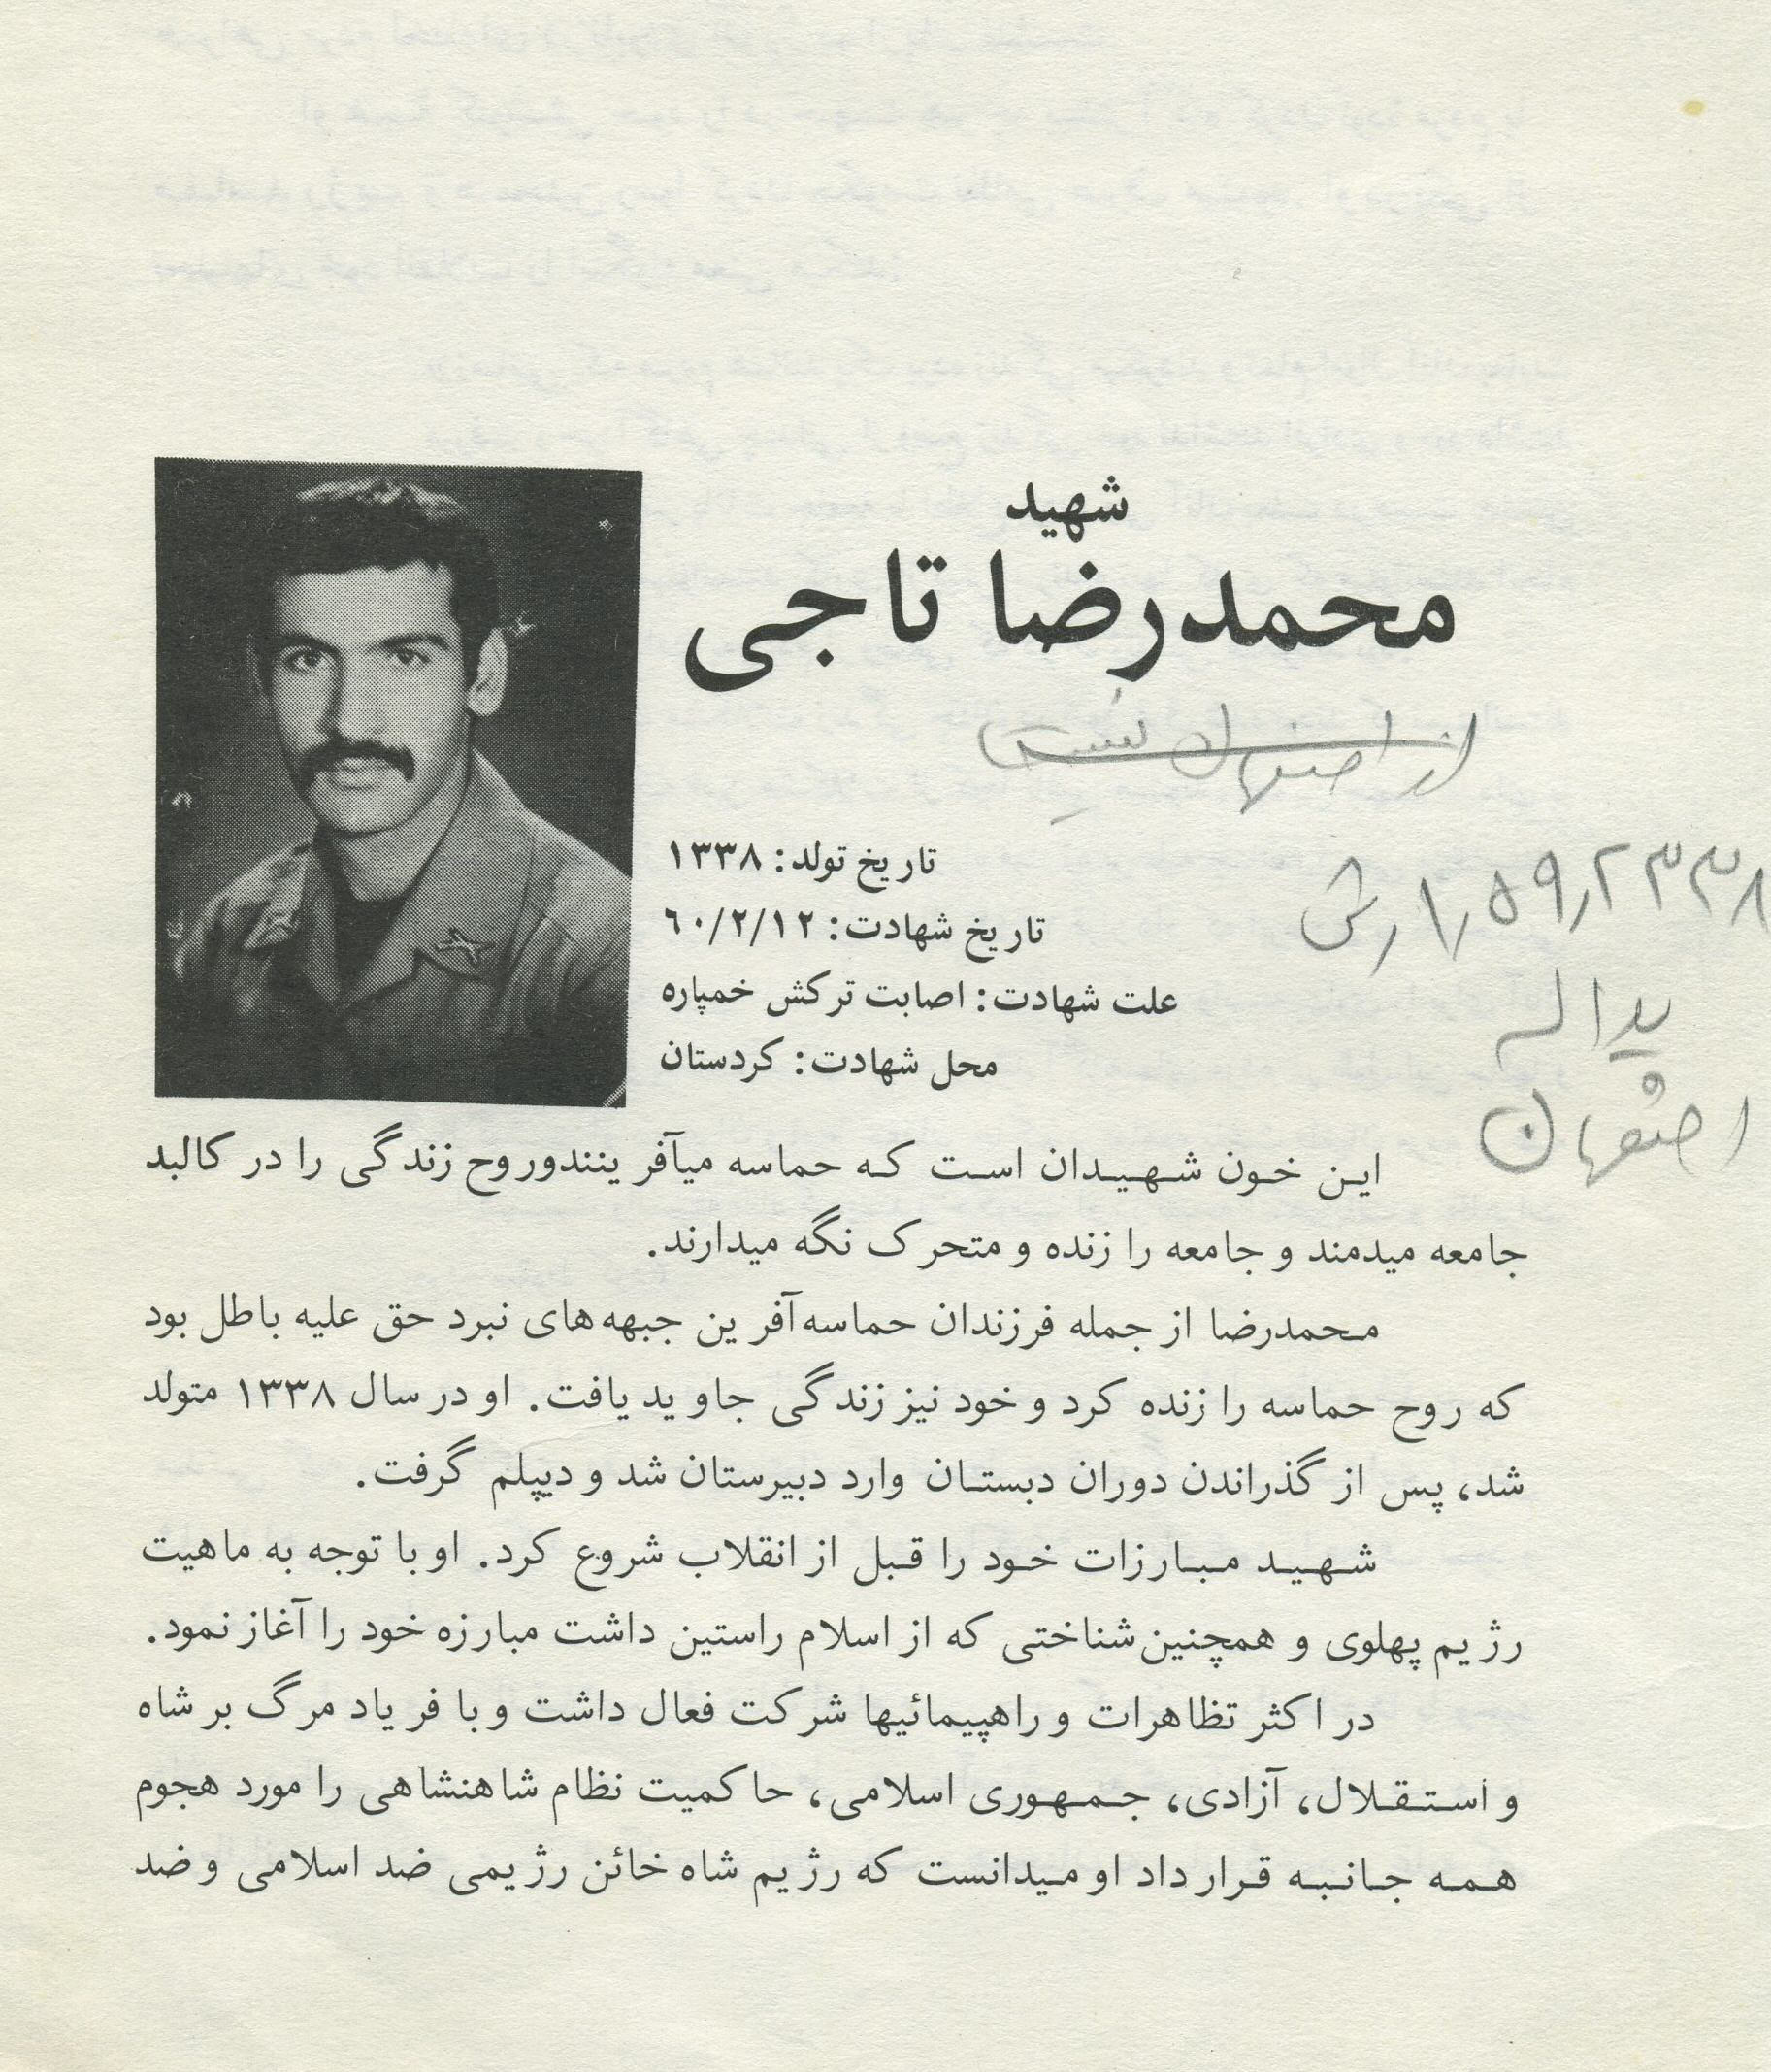 شهید
محمدرضا تاجی
از اصفهان نیست
تاریخ تولد: ۱۳۳۸
تاریخ شهادت: ۶۰/۲/۱۲
علت شهادت: اصابت ترکش خمپاره
محل شهادت: کردستان
یداله
اصفهان
این خون شهیدان است که حماسه میآفرینندوروح زندگی را در کالبد
جامعه میدمند و جامعه را زنده و متحرک نگه میدارند.
محمدرضا از جمله فرزندان حماسه‌آفرین جبهه‌های نبرد حق علیه باطل بود
که روح حماسه را زنده کرد و خود نیز زندگی جاوید یافت. او در سال ۱۳۳۸ متولد
شد، پس از گذراندن دوران دبستان وارد دبیرستان شد و دیپلم گرفت.
شهید مبارزات خود را قبل از انقلاب شروع کرد. او با توجه به ماهیت
رژیم پهلوی و همچنین شناختی که از اسلام راستین داشت مبارزه خود را آغاز نمود.
در اکثر تظاهرات و راهپیمائیها شرکت فعال داشت و با فریاد مرگ بر شاه
و استقلال، آزادی، جمهوری اسلامی، حاکمیت نظام شاهنشاهی را مورد هجوم
همه جانبه قرار داد او میدانست که رژیم شاه خائن رژیمی ضد اسلامی و ضد